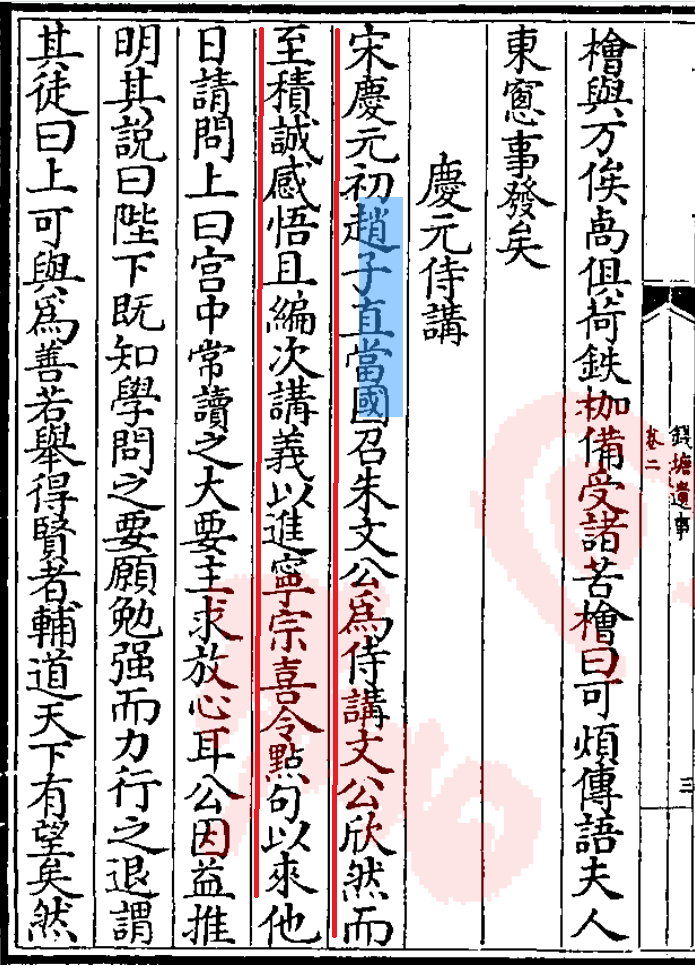 錢塘遺事
卷二
三
檜與万俟卨俱荷鉄枷備受諸苦檜曰可煩傳語夫人
東窻事發矣
慶元侍講
宋慶元初趙子直當國召朱文公爲侍講文公欣然而
至積誠感悟且編次講義以進寧宗喜令點句以來他
日請問上曰宫中常讀之大要主求放心耳公因益推
明其説曰陛下既知學問之要願勉强而力行之退謂
其徒曰上可與爲善若舉得賢者輔道天下有望矣然